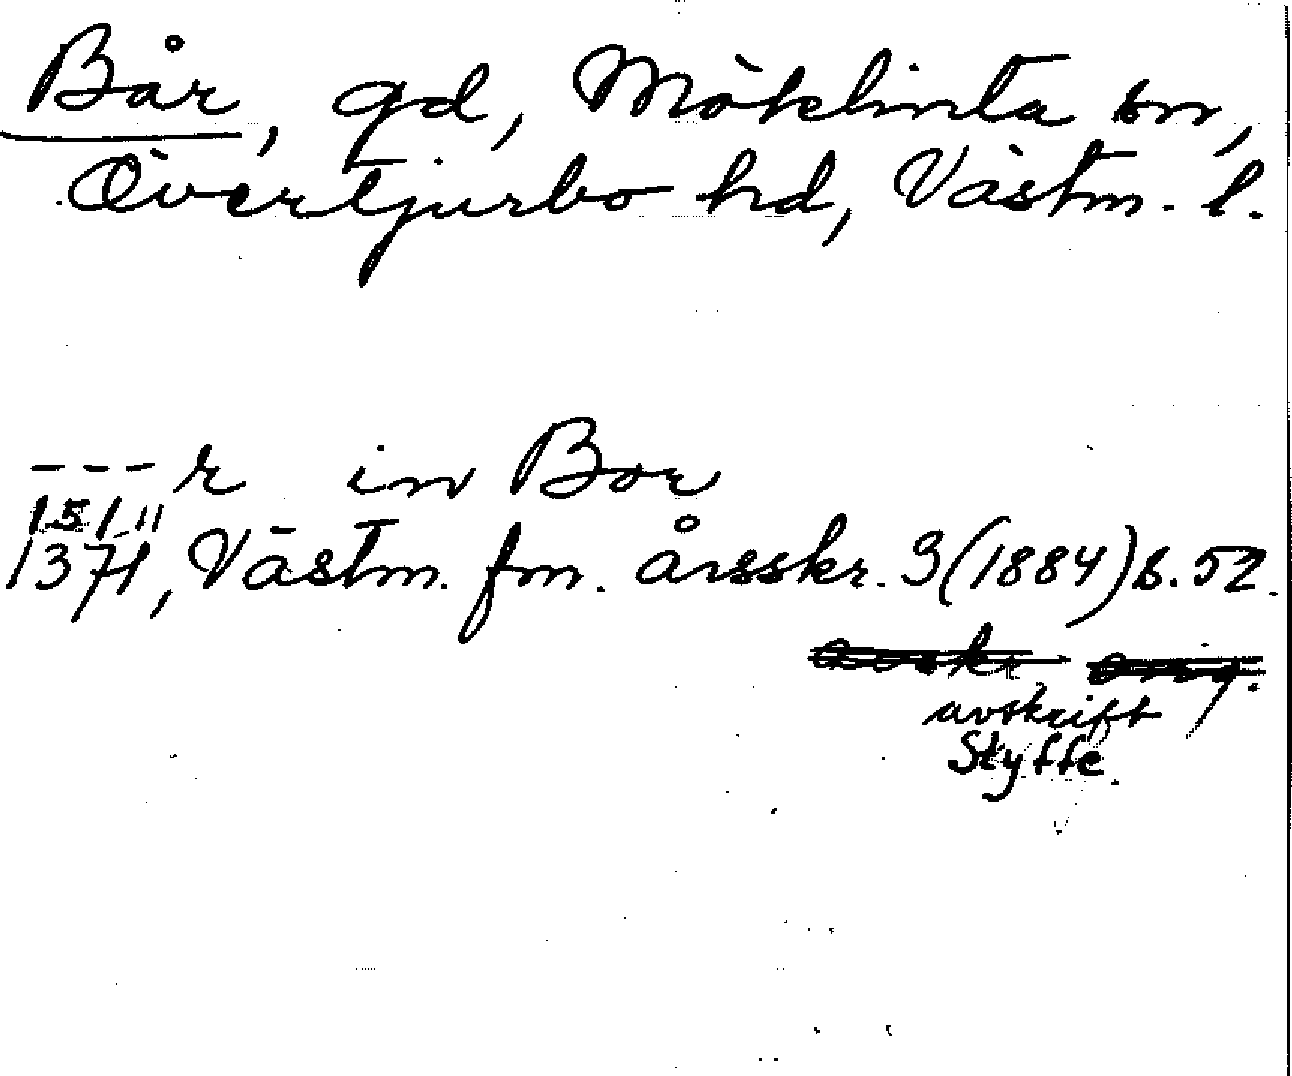 Bår, gd, Möklinta sn,
Övertjurbo hd, Västm. l.
---r in Bor
15/11
1371, Västm. fm. årsskr. 3 (1884) s. 52.
avskrift
Styffe.